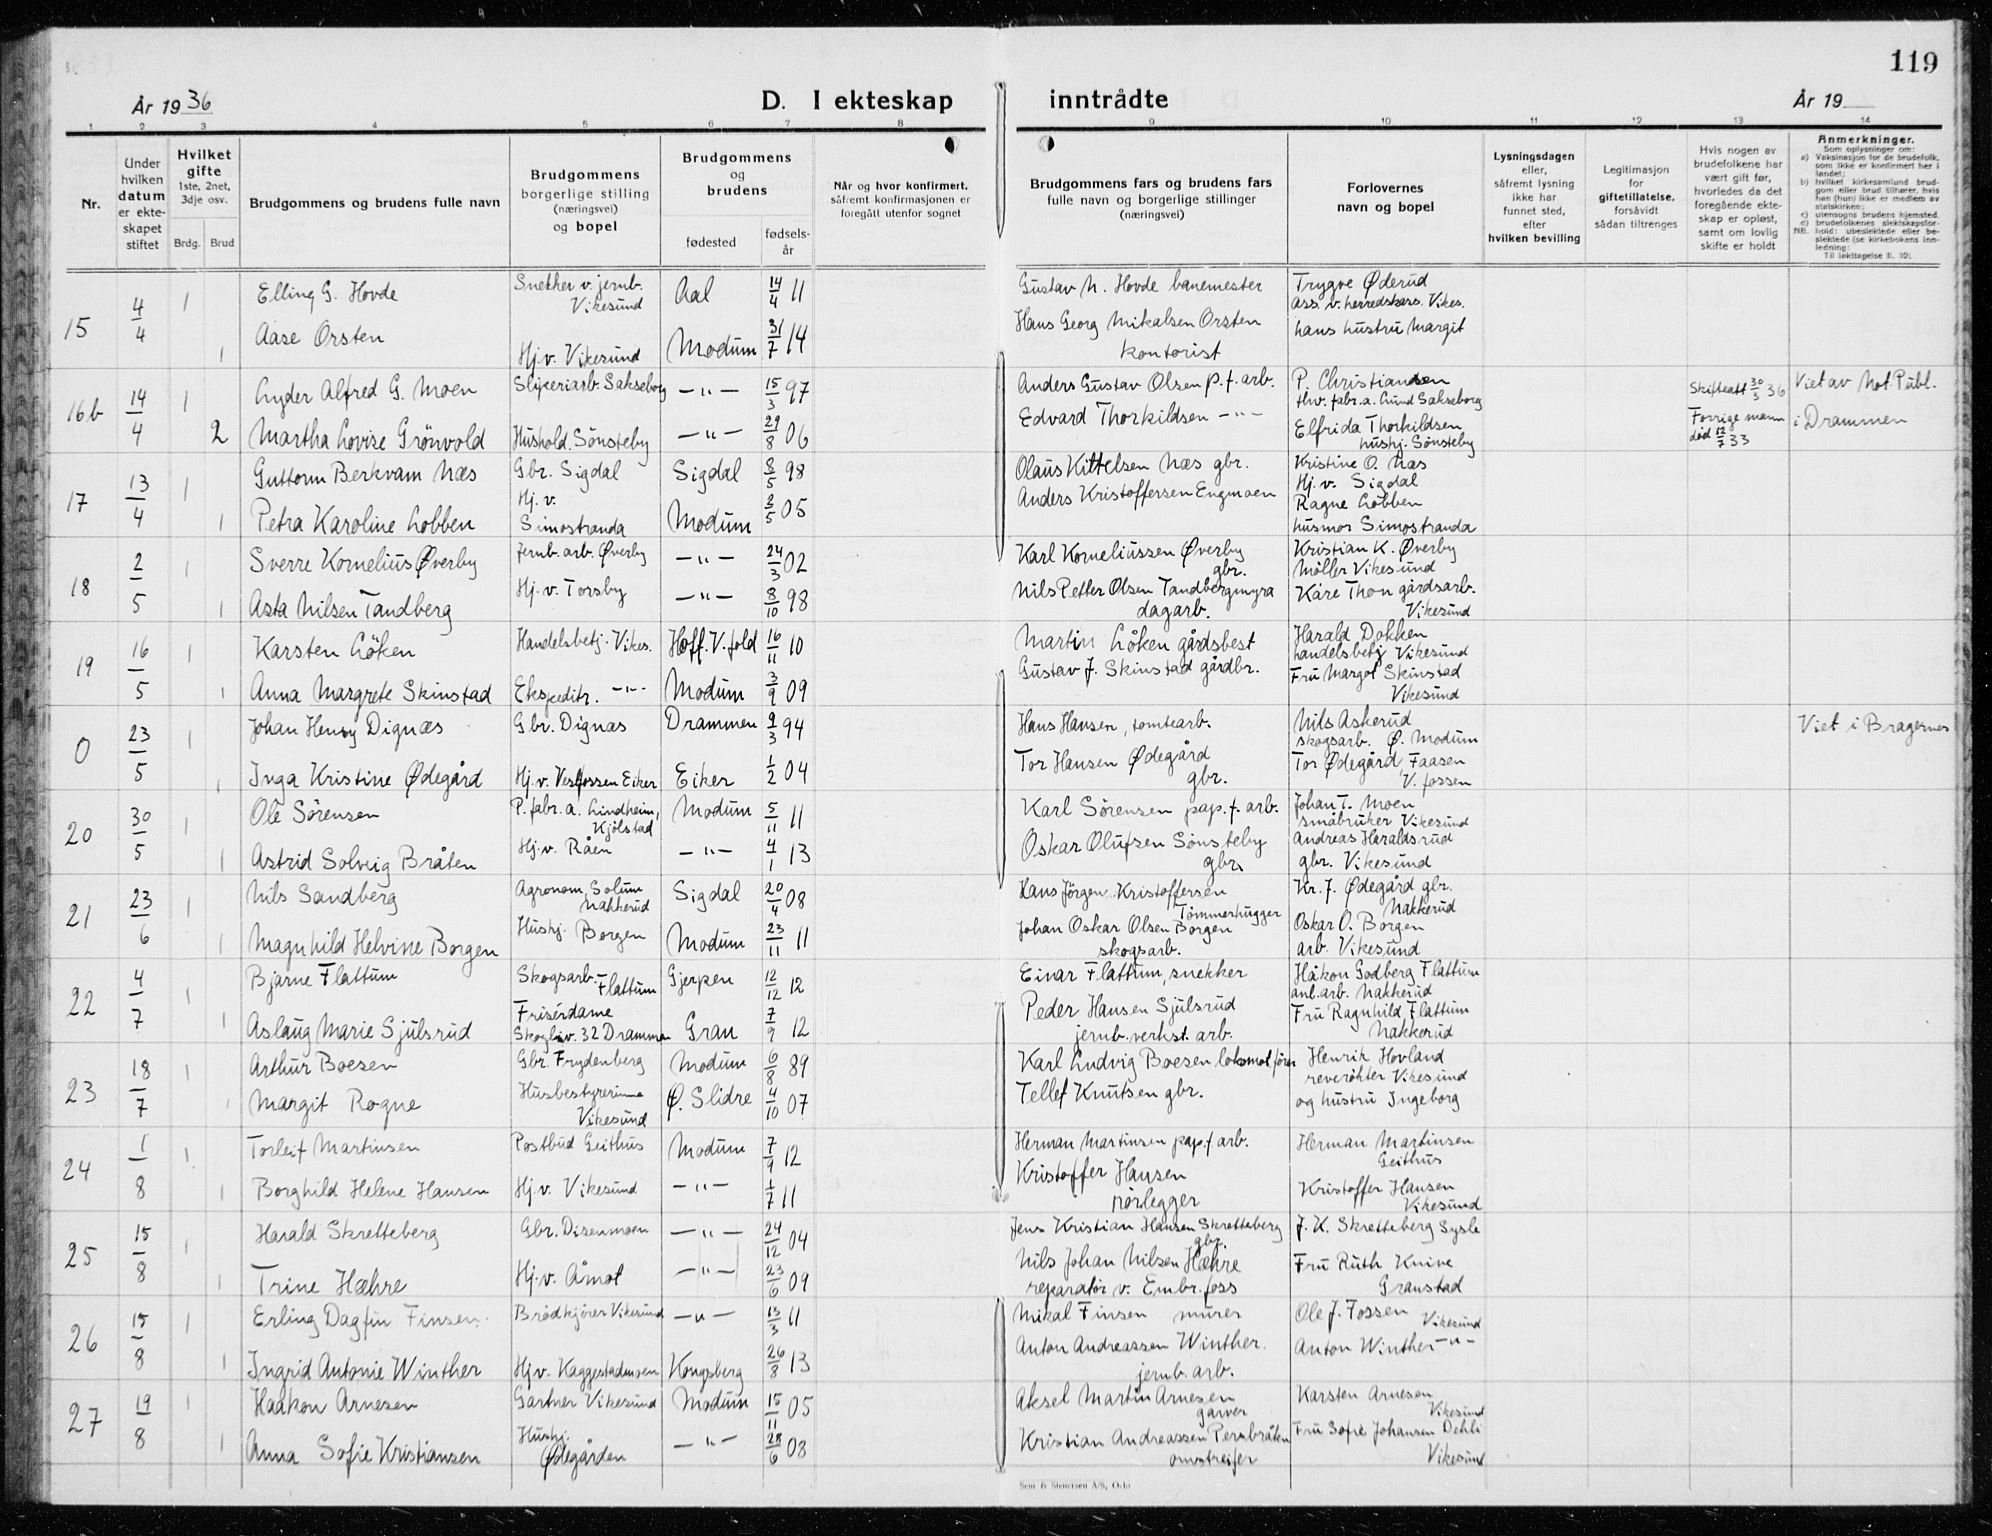 119
År 1936
D. I ekteskap inntrådte
År 19
1 2 3 4 5 6 7 8 9 10 11 12 13 14
Nr.
Under hvilken datum er ekteskapet stiftet
Hvilket gifte 1ste, 2net, 3dje osv.
Brdg. Brud
Brudgommens og brudens fulle navn
Brudgommens borgerlige stilling (næringsvei) og bopel
Brudgommens og brudens
fødested
fødselsår
Når og hvor konfirmert, såfremt konfirmasjonen er foregått utenfor sognet
Brudgommens fars og brudens fars fulle navn og borgerlige stillinger (næringsvei)
Forlovernes navn og bopel
Lysningsdagen eller, såfremt lysning ikke har funnet sted, efter hvilken bevilling
Legitimasjon for giftetillatelse, forsåvidt sådan tiltrenges
Hvis nogen av brudefolkene har vært gift før, hvorledes da det foregående ekteskap er opløst, samt om lovlig skifte er holdt
Anmerkninger.
Som oplysninger om:
a) Vaksinasjon for de brudefolk, som ikke er konfirmert her i landet;
b) hvilket kirkesamfund brudgom eller brud tilhører, hvis han (hun) ikke er medlem av statskirken;
c) utensogns brudens hjemsted.
d) brudefolkenes slektskapsforhold: ubeslektede eller beslektede (se kirkebokens innledning:
15 4/4 1 Elling G. Hovde Snekker v. jernb. Vikesund Aal 14/4 11 Gustav N. Hovde banemester Trygve Øderud ass. v. herredskass. Vikes.
1 Aase Orsten Hj.v. Vikesund Modum 31/7 14 Hans Georg Mikalsen Orsten kontorist hans hustru Margit
16b 14/4 1 Lyder Alfred G. Moen Sliperiarb. Sakseborg —"— 15/3 97 Anders Gustav Olsen p.f. arb. P. Christiansen thv. fabr.a. Lund Sakseborg Skifteatt 30/3 36 Viet av Not. Publ.
2 Martha Lovise Grönvold Hushold. Sønsteby —"— 29/8 06 Edvard Thorkildsen —"— Elfrida Thorkildsen hushj. Sønsteby Forrige mann død 12/7 33 i Drammen
17 13/4 1 Guttorm Berkvam Næs Gbr. Sigdal Sigdal 8/5 98 Olaus Kittelsen Næs gbr. Kristine O. Næs Hj. v. Sigdal
1 Petra Karoline Lobben Hj. v. Simostranda Modum 2/5 05 Anders Kristoffersen Engmoen Ragne Lobben husmor Simostranda
18 2/5 1 Sverre Kornelius Øverby Jernb. arb. Øverby —"— 24/3 02 Karl Korneliussen Øverby gbr. Kristian K. Øverby Møller Vikesund
1 Asta Nilsen Tandberg Hj. v. Torsby —"— 8/10 98 Nils Petter Olsen Tandbergmyra dagarb. Kåre Thon gårdsarb. Vikesund
19 16/5 1 Karsten Löken Handelsbetj. Vikes. Hoff. V. fold 16/11 10 Martin Löken gårdsbest Harald Dokken handelsbetj Vikesund
1 Anna Margrete Skinstad Ekspeditr. —"— Modum 3/9 09 Gustav J. Skinstad gårdbr. Fru Margot Skinstad Vikesund
0 23/5 1 Johan Henry Dignæs Gbr. Dignæs Drammen 9/3 94 Hans Hansen, tomtearb. Nils Askerud skogsarb. Ø. Modum Viet i Bragernes
1 Inga Kristine Ødegård Hj. v. Vestfossen Eiker Eiker 1/2 04 Tor Hansen Ødegård gbr. Tor Ødegård, Faasen V. fossen
20 30/5 1 Ole Sörensen P. fabr. a. Lindheim, Kjölstad Modum 5/11 11 Karl Sörensen pap. f. arb. Johan T. Moen småbruker Vikesund
1 Astrid Solveig Bråten Hj. v. Råen —"— 4/1 13 Oskar Olufsen Sønsteby gbr. Andreas Haraldsrud gbr. Vikesund
21 23/6 1 Nils Sandberg Agronom, Solum Nakkerud Sigdal 20/4 08 Hans Jörgen Kristoffersen Tömmerhugger Kr. J. Ødegård gbr. Nakkerud
1 Magnhild Helvine Borgen Hushj. Borgen Modum 23/11 11 Johan Oskar Olsen Borgen skogsarb. Oskar O. Borgen arb. Vikesund
22 4/7 1 Bjarne Flattum Skogsarb. Flattum Gjerpen 12/12 12 Einar Flattum, snekker Håkon Godberg Flattum anl. arb. Nakkerud
1 Aslaug Marie Sjulsrud Frisérdame Skogliv. 32 Drammen Gran 7/9 12 Peder Hansen Sjulsrud jernb. verkst. arb. Fru Ragnhild Flattum Nakkerud
23 18/7 1 Arthur Boesen Gbr. Frydenberg Modum 6/8 89 Karl Ludvig Boesen lokomot.fører Henrik Hovland reverökter Vikesund
1 Margit Rogne Husbestyrerinne Vikesund Ø. Slidre 4/10 07 Tellef Knutsen gbr. og hustru Ingeborg
24 1/8 1 Torleif Martinsen Postbud Geithus Modum 7/9 12 Herman Martinsen pap.f arb. Herman Martinsen Geithus
1 Borghild Helene Hansen Hj. v. Vikesund —"— 1/7 11 Kristoffer Hansen rörlegger Kristoffer Hansen Vikesund
25 15/8 1 Harald Skretteberg Gbr. Disenmoen —"— 24/12 04 Jens Kristian Hansen Skretteberg gbr. J. K. Skretteberg Sysle
1 Trine Hæhre Hj. v. Åmot —"— 23/6 09 Nils Johan Nilsen Hæhre reparatør v. Embr. foss Fru Ruth Knive Granstad
26 15/8 1 Erling Dagfin Finsen Brödkjörer Vikesund —"— 13/3 11 Mikal Finsen murer Ole J. Fossen Vikesund
1 Ingrid Antonie Winther Hj. v. Kaggestadmoen Kongsberg 26/8 13 Anton Andreassen Winther jernb. arb. Anton Winther —"—
27 19/8 1 Haakon Arnesen Gartner Vikesund Modum 15/11 05 Aksel Martin Arnesen garver Karsten Arnesen Vikesund
1 Anna Sofie Kristiansen Hushj. Ødegården —"— 28/6 08 Kristian Andreassen Persbråten omstreifer Fru Sofie Johansen Dehli Vikesund
Sem & Stenersen A/S, Oslo